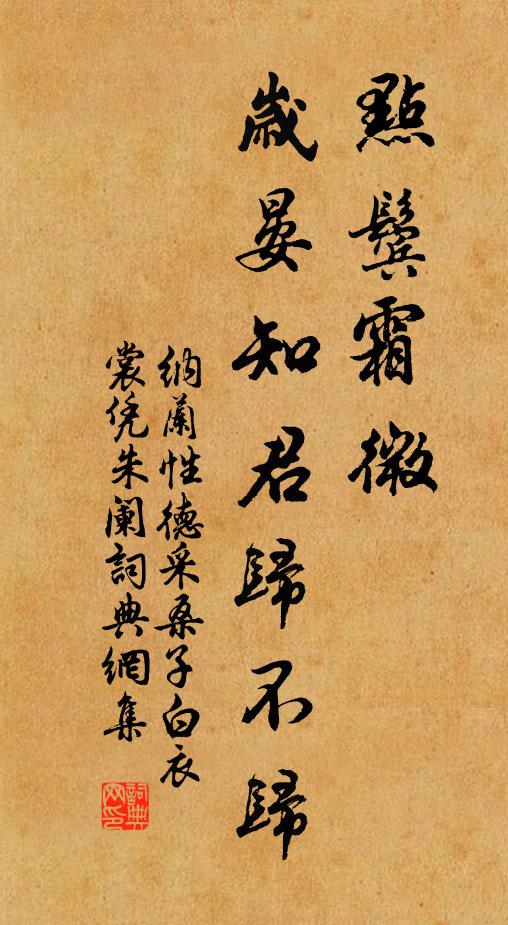 點鬢霜微
歲晏知君歸不歸
纳蘭性德采桑子白衣
裳凭朱闌詞典網集
詞典网印